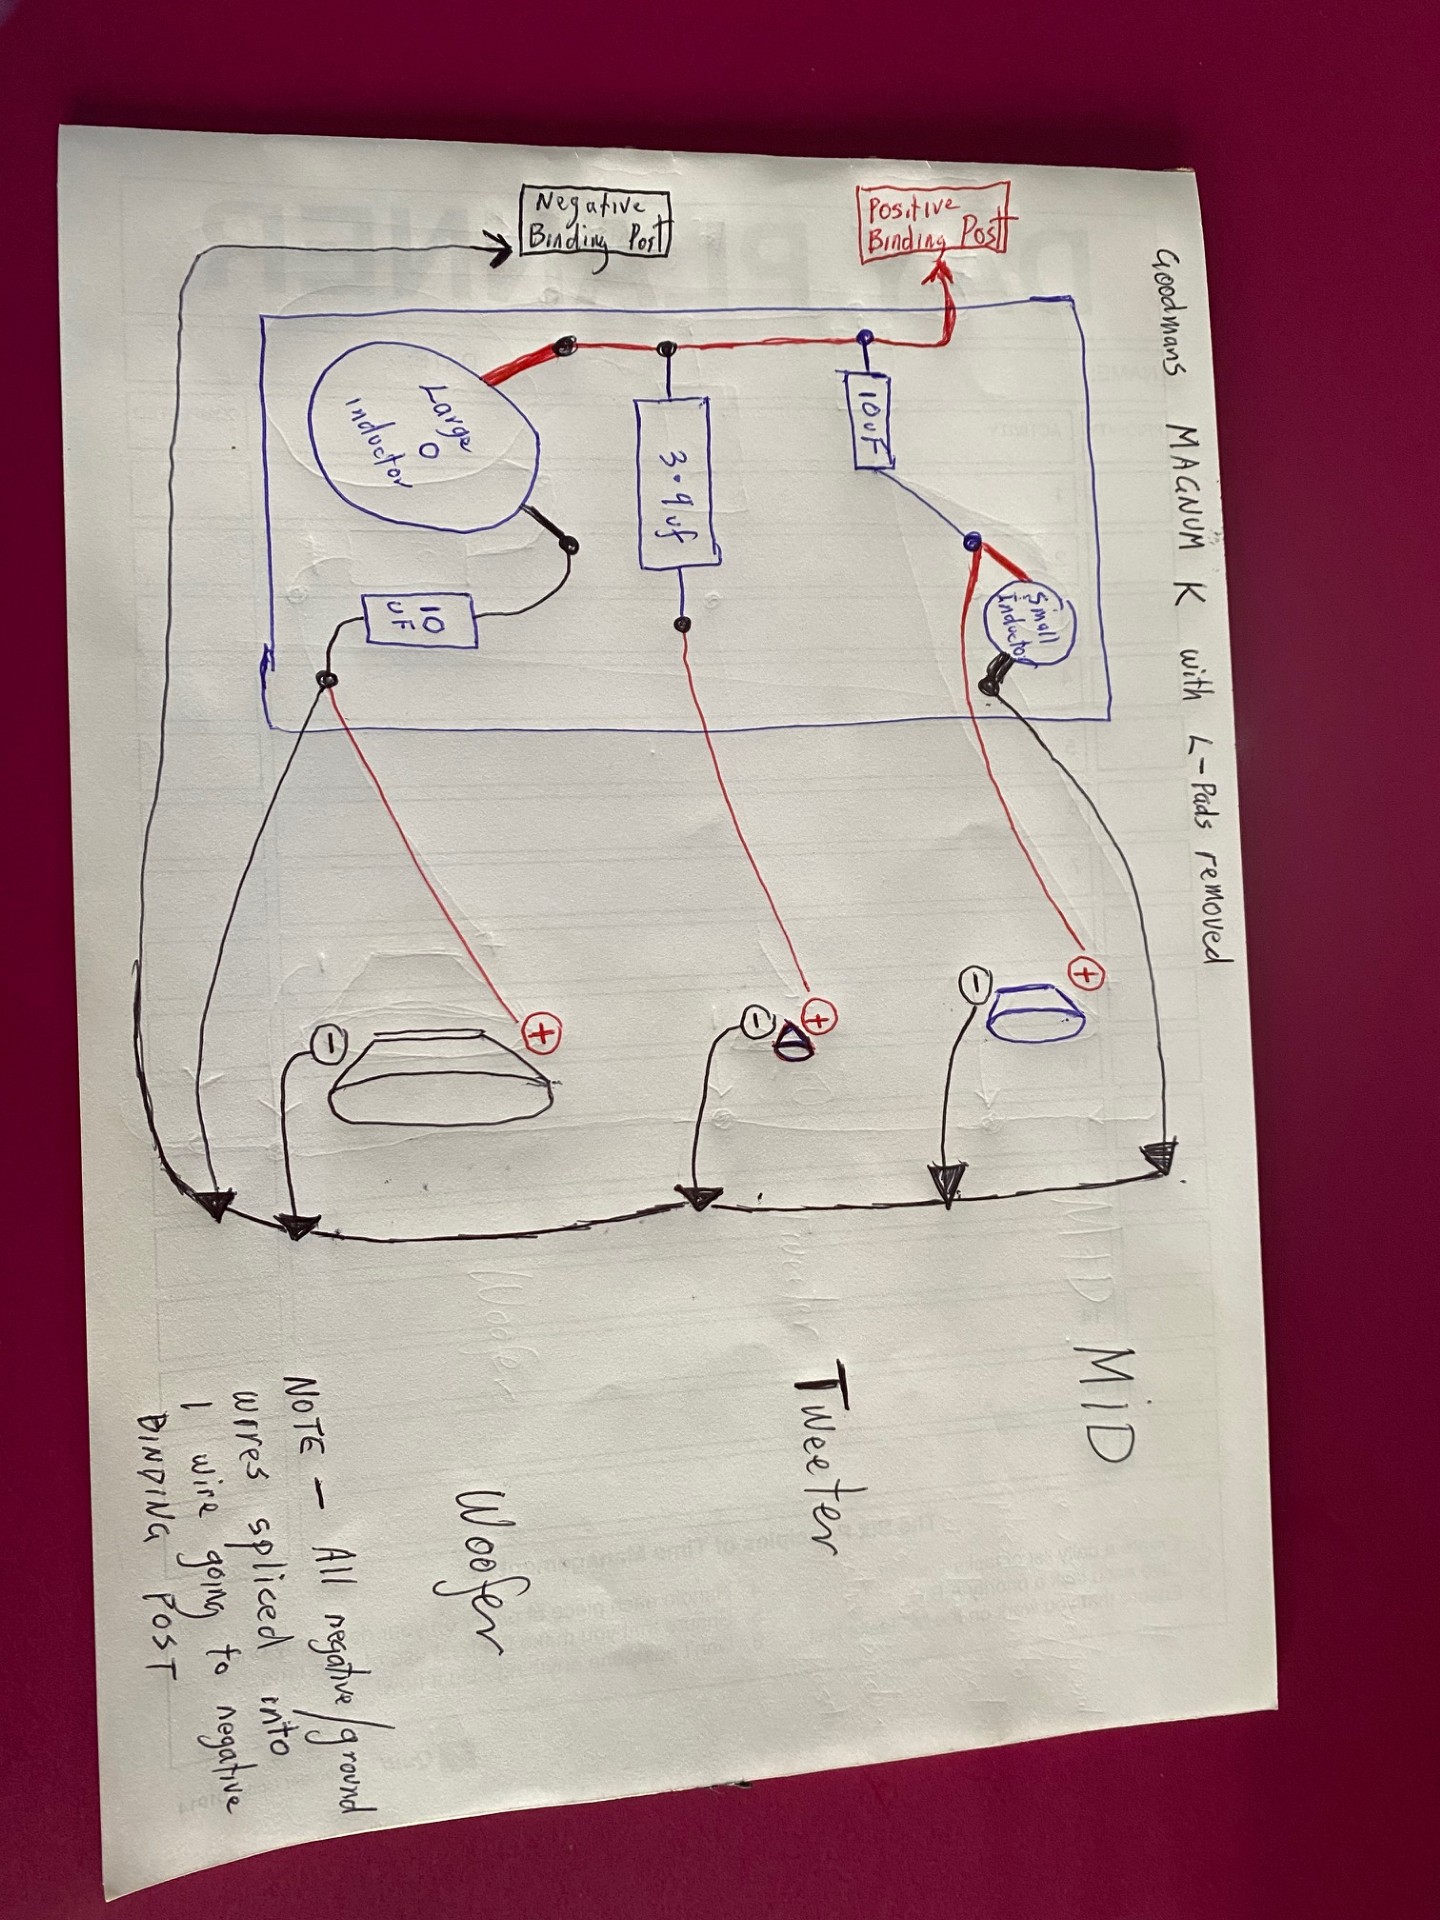 Goodmans MAGNUM K with L-Pads removed
Negative
Binding Post
Positive
Binding Post
Large
inductor
3.9uf
10uF
Small
Inductor
10
uF
+
-
+
-
+
-
MiD
Tweeter
Woofer
NOTE - All negative/ground
wires spliced into
1 wire going to negative
BINDING POST